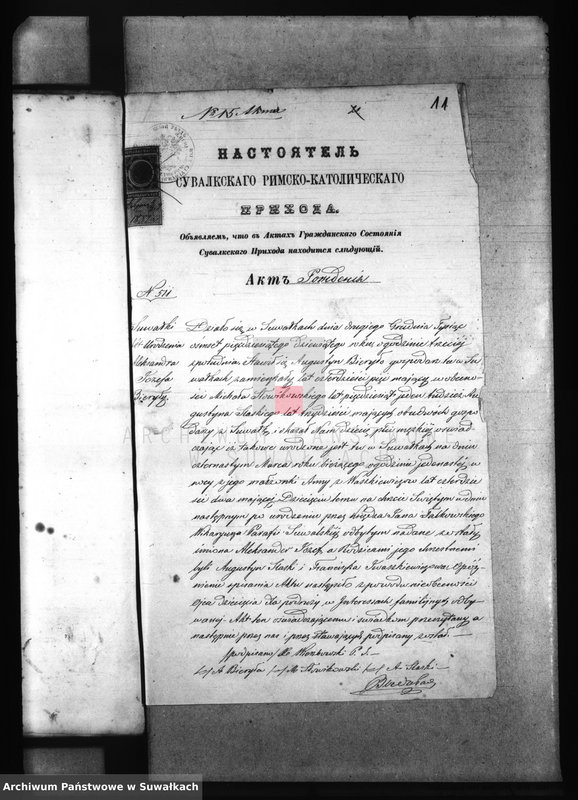 № 15 Akta
11
НАСТОЯТЕЛЬ
СУВАЛКСКАГО РИМСКО-КАТОЛИЧЕСКАГО
ПРИХОДА.
Объявляемъ, что въ Актахъ Гражданскаго Состоянія
Сувалкскаго Прихода находится слѣдующій.
Актъ Рожденія
N 511
Suwałki
Urodzenia
Aleksandra
Józefa
Bieryło
Działo się w Suwałkach dnia drugiego Grudnia Tysiąc
ośmset pięćdziesiątego dziewiątego roku o godzinie trzeciej
z południa Stawił się Augustyn Bieryło gospodarz tu w Su-
wałkach zamieszkały lat czterdzieści pięć mający w obecno-
ści Michała Słowikowskiego lat pięćdziesiąt jeden tudzież Au-
gustyna Staskiego lat trzydzieści mających obudwóch gospo-
darzy z Suwałk i okazał Nam dziecię płci męzkiej oświad-
czając iż takowe urodzone jest tu w Suwałkach na dniu
czternastym Marca roku bieżącego o godzinie jedenastej w
nocy z jego małżonki Anny z Waśkiewiczów lat czterdzie-
ści dwa mającej Dziecięciu temu na chrzcie Świętym w dniu
następnym po urodzeniu przez księdza Jana Falkowskiego
Wikaryusza Parafii Suwalskiej odbytym nadane zostały
imiona Aleksander Józef a Rodzicami jego chrzestnemi
byli Augustyn Staski i Franciszka Iwaszkiewiczowa Opóź-
nienie spisania Aktu nastąpiło z powodu nieobecności
Ojca dziecięcia dla podróży w Interessach familijnych odby-
wanej. Akt ten oświadczającemu i świadkom przeczytany a
następnie przez nas i przez stawających podpisany został.
podpisano
A Bieryło M Słowikowski A. Staski
ARCHIWUM PAŃSTWOWE
Archiwum Państwowe w Suwałkach